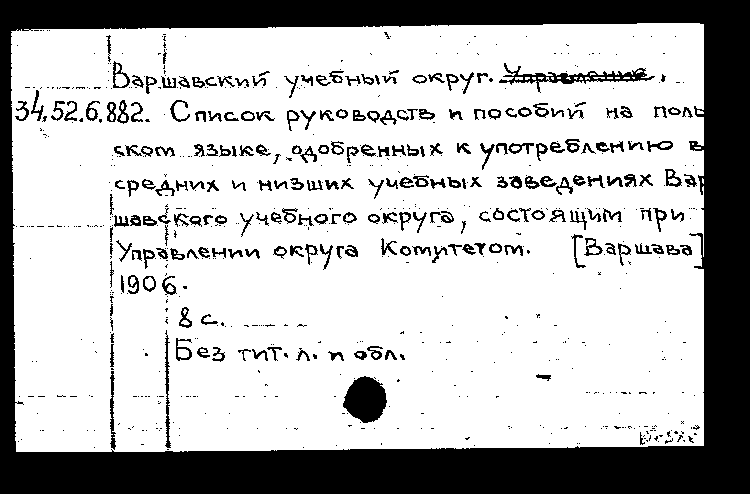 Варшавский учебный округ. Управление.
34.52.6.882. Список руководств и пособий на поль
ском языке, одобренных к употреблению в
средних и низших учебных заведениях Вар
шавского учебного округа, состоящим при
Управлении округа Комитетом. [Варшава]
1906.
8 с.
Без тит. л. и обл.